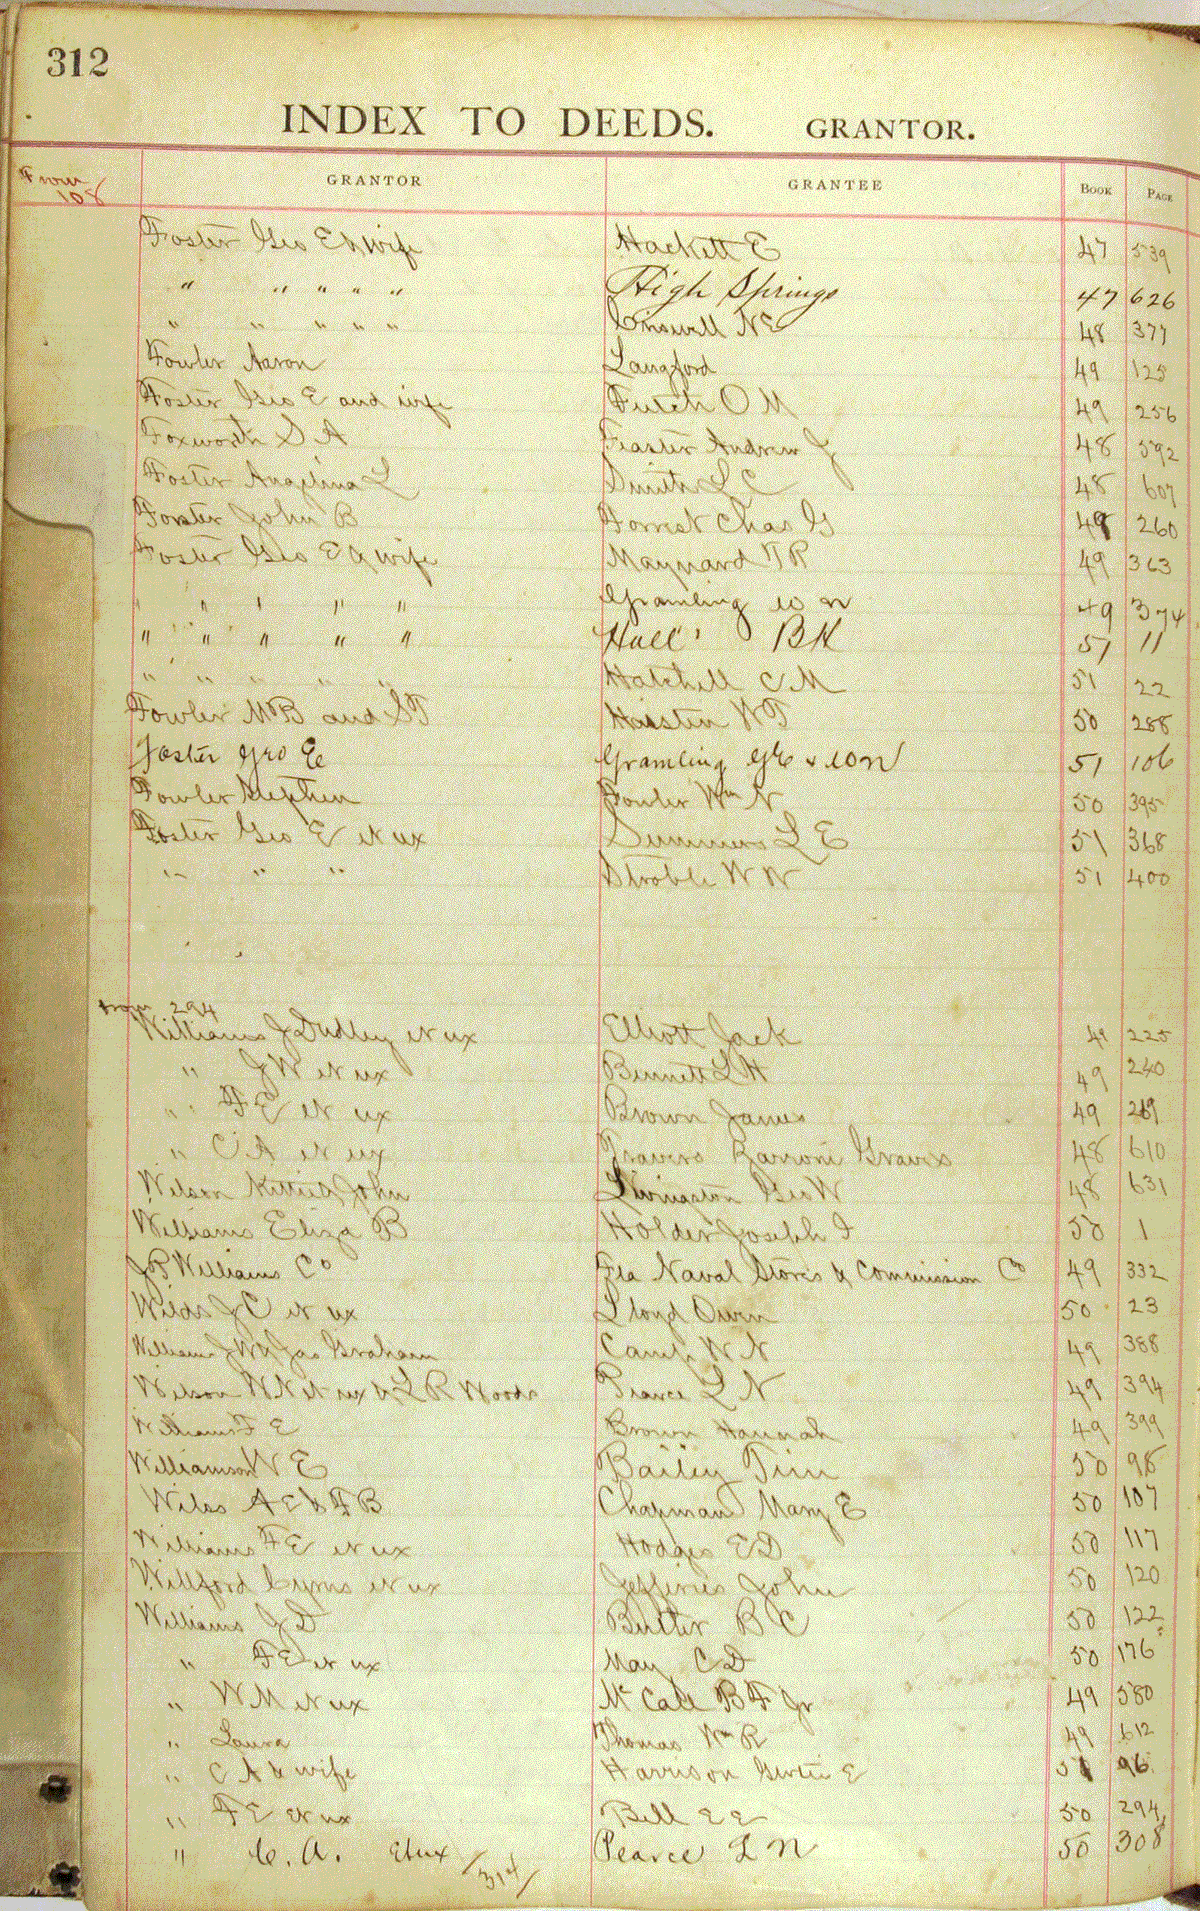 312
INDEX TO DEEDS. GRANTOR.
From 108
GRANTOR GRANTEE BOOK PAGE
Foster Geo E & wife Hackett E 47 539
" " " " " High Springs 47 626
" " " " " Criswell N E 48 377
Fowler Aaron Langford 49 125
Foster Geo E and wife Futch O M 49 256
Foxworth S A Feaster Andrew J 48 592
Foster Angelina L Smith L C 48 607
Forster John B Forrest Chas G 49 260
Foster Geo E & wife Maynard T R 49 363
" " " " " Gramling W N 49 374
" " " " " Hall B H 51 11
" " " " " Hatchell C M 51 22
Fowler M B and S F Haisten W T 50 288
Foster Geo E Gramling & W N 51 106
Fowler Stephen Fowler Wm N 50 395
Foster Geo E et ux Summers L E 51 368
" " " Stroble W W 51 400
from 294
Williams J Dudley et ux Elliott Jack 49 225
" J W et ux Bennett L H 49 240
" F E et ux Brown James 49 269
" C A et ux Travers Graves 48 610
Wilson John Livingston Geo W 48 631
Williams Eliza B Holder Joseph I 50 1
J P Williams Co Fla Naval Stores & Commission Co 49 332
Wilds J C et ux Lloyd Owen 50 23
Williams J W & Jas Graham Camp W N 49 388
Wilson W N et ux & L R Woods Pearce L N 49 394
Williams F E Brown Hannah 49 399
Williamson W E Bailey Tim 50 98
Wiles A E & F B Chapman Mary E 50 107
Williams F E et ux Hodges E D 50 117
Willford Cyrus et ux Jefferies John 50 120
Williams J D Butler B C 50 122
" F E et ux May C D 50 176
" W M et ux McCall B F Jr 49 580
" Laura Thomas Wm R 49 612
" C A & wife Harrison Gertie E 51 96
" F E et ux Bell E E 50 294
" C. A. et ux /314/ Pearce L N 50 308